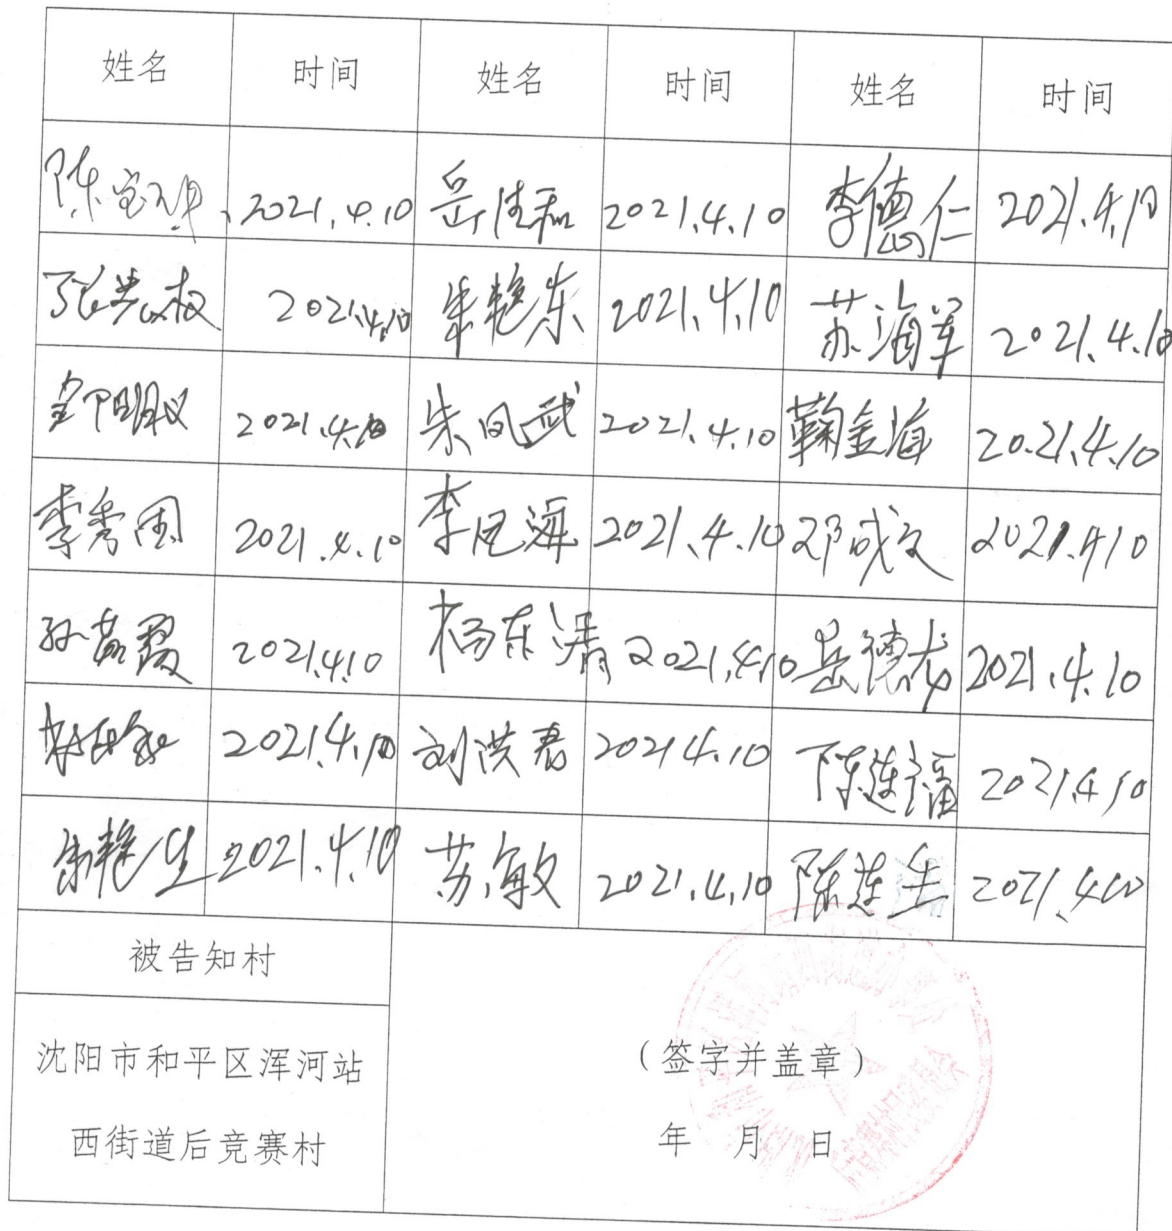 姓名 时间 姓名 时间 姓名 时间
陈宝 2021.4.10 岳佳和 2021.4.10 李德仁 2021.4.10
张洪权 2021.4.10 朱艳东 2021.4.10 苏海军 2021.4.10
2021.4.10 朱凤武 2021.4.10 鞠金海 2021.4.10
李秀国 2021.4.10 李凤海 2021.4.10 邓成文 2021.4.10
孙 霞 2021.4.10 杨东涛 2021.4.10 岳德龙 2021.4.10
2021.4.10 刘洪君 2021 4.10 陈连福 2021.4.10
朱艳生 2021.4.10 苏敏 2021.4.10 陈连生 2021.4.10
被告知村
沈阳市和平区浑河站
西街道后竞赛村
（签字并盖章）
年 月 日